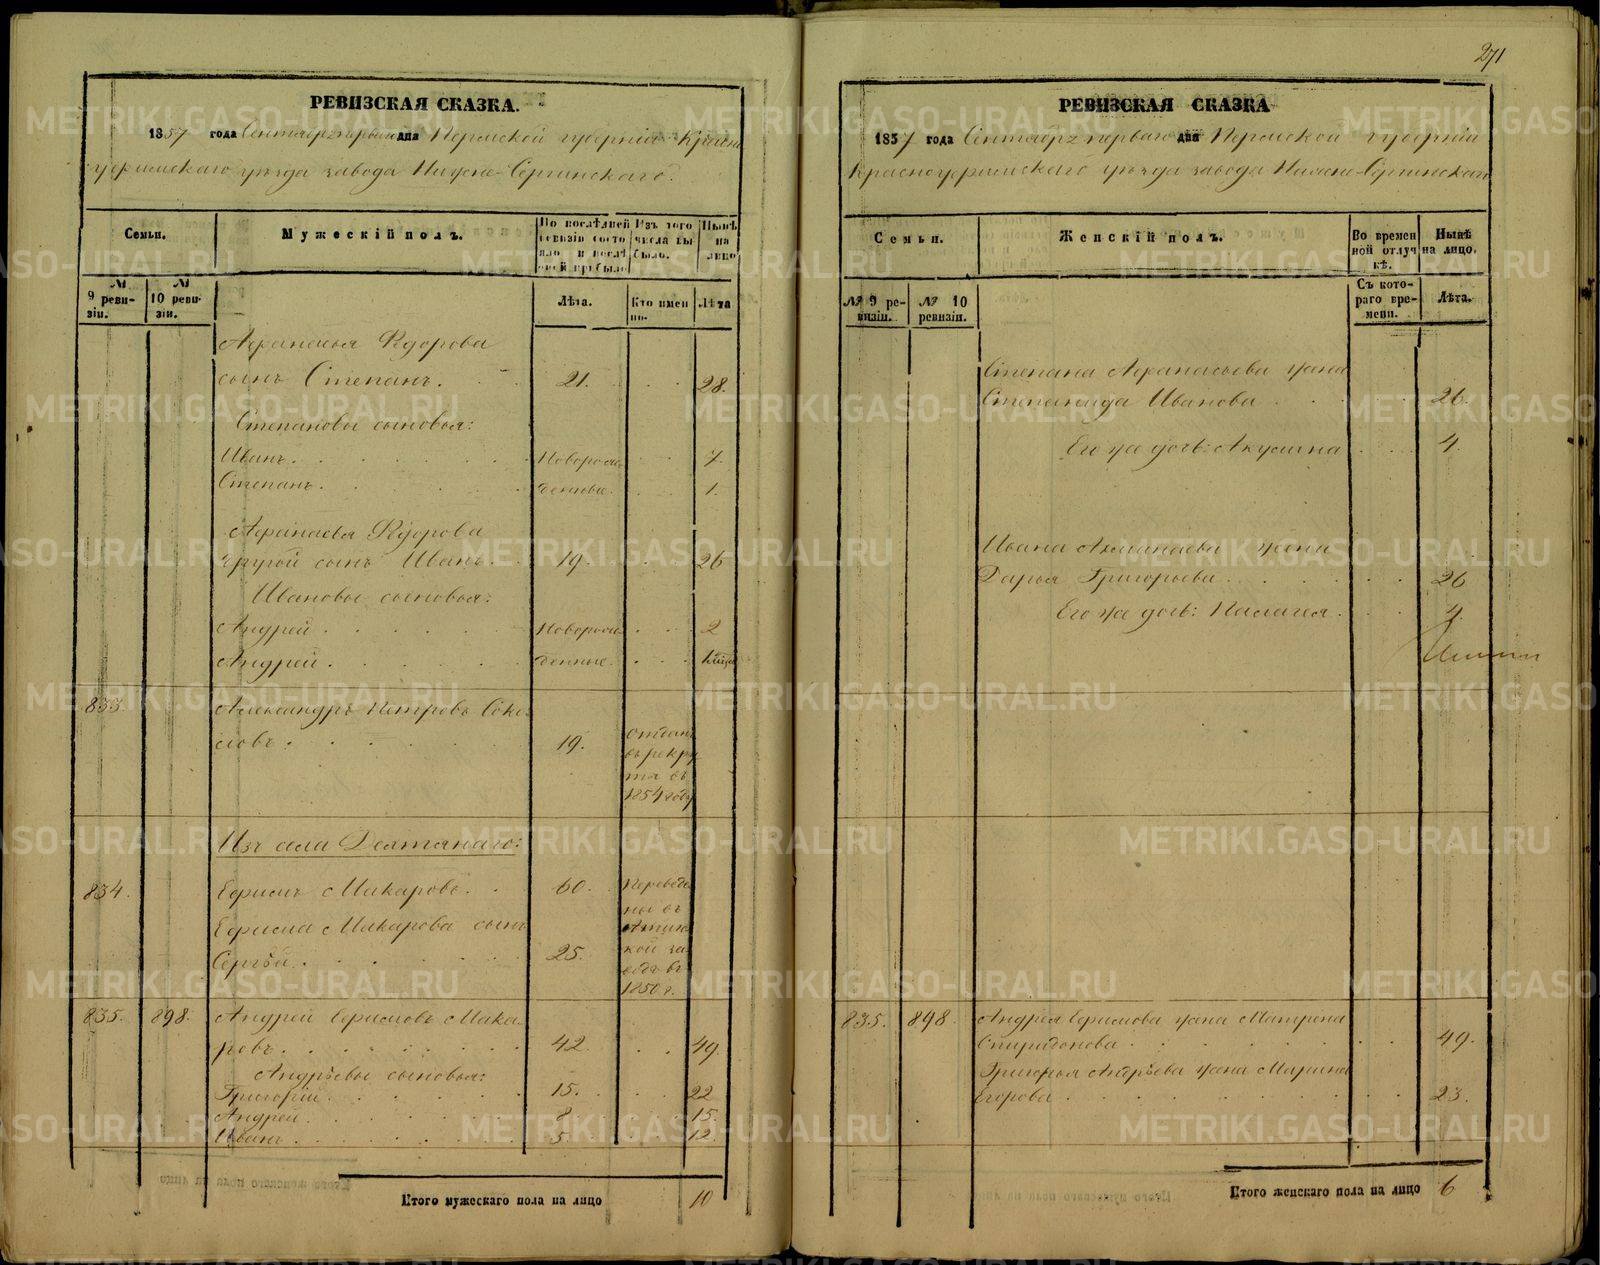 271
РЕВИЗСКАЯ СКАЗКА.
1857 года Сентября перваго дня Пермской губернiи Красно
уфимскаго уѣзда завода Нижне-Сергинскаго.
Семьи.
Мужескiй полъ.
По послѣдней ревизiи состояло и послѣ оной прибыло
Изъ того числа выбыло.
Нынѣ на лицо
№ 9 ревизiи.
№ 10 ревизiи.
Лѣта.
Кто именно.
Лѣта
Афанасья Ѳдорова
сынъ Степанъ. 21. 28.
Степановы сыновья:
Иванъ. Новорож 7.
Степанъ. денные. 1.
Афанасья Ѳдорова
другой сынъ Иванъ. 19. 26
Ивановы сыновья:
Андрей Новорож 2
Андрей. денные.
833. Александръ Петровъ Соко
ловъ. 19. отданъ
въ рекру
ты въ
1854 году
Изъ села
834. Ефимъ Макаровъ. 60. Переведе
ны въ
Ефима Макарова сынъ
Сергѣй. 25. кой за
водъ въ
1850 г.
835. 898. Андрей Ефимовъ Мака
ровъ. 42. 49.
Андрѣевы сыновья:
Григорiй. 15. 22
Андрей. 8. 15
Иванъ 5. 12
Итого мужескаго пола на лицо 10
РЕВИЗСКАЯ СКАЗКА
1857 года Сентября перваго дня Пермской губернiи
Красноуфимскаго уѣзда завода Нижне-Сергинскаго
Семьи.
Женскiй полъ.
Во временной отлучкѣ.
Нынѣ на лицо.
№ 9 ревизiи.
№ 10 ревизiи.
Съ котораго времени.
Лѣта.
Степана Афанасьева жена
Степанида Иванова 26.
Его же дочь: Акулина 4.
Ивана Афанасьева жена
Дарья Григорьева. 26
Его же дочь: Палагея. 4.
835. 898. Андрея Ефимова жена Матрена
Спиридонова 49.
Григорья Андрѣева жена Марина
Егорова 23.
Итого женскаго пола на лицо 6
METRIKI.GASO-URAL.RU